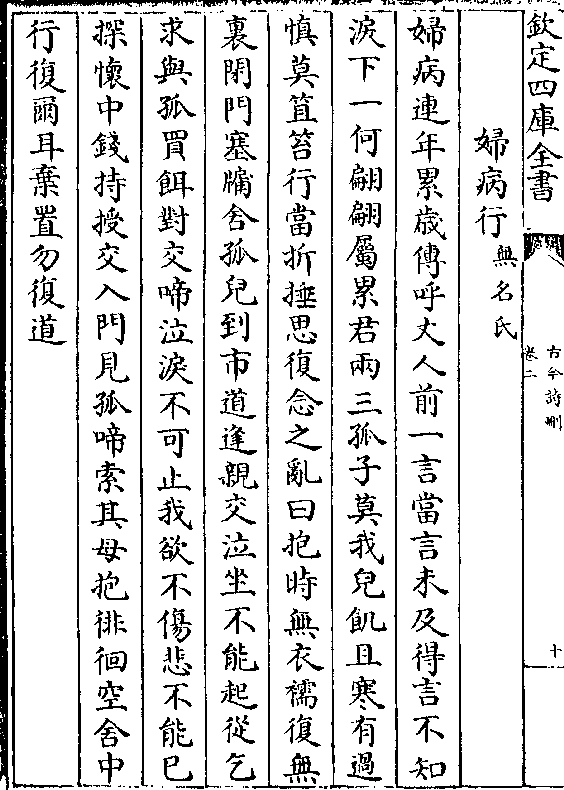 欽定四庫全書
古今詩刪
卷二
十
婦病行無名氏
婦病連年累歲傳呼丈人前一言當言未及得言不知
淚下一何翩翩屬累君兩三孤子莫我兒飢且寒有過
慎莫笪笞行當折揺思復念之亂曰抱時無衣襦復無
裏閉門塞牖舍孤兒到市道逢親交泣坐不能起從乞
求與孤買餌對交啼泣淚不可止我欲不傷悲不能已
探懷中錢持授交入門見孤啼索其母抱徘徊空舍中
行復爾耳棄置勿復道